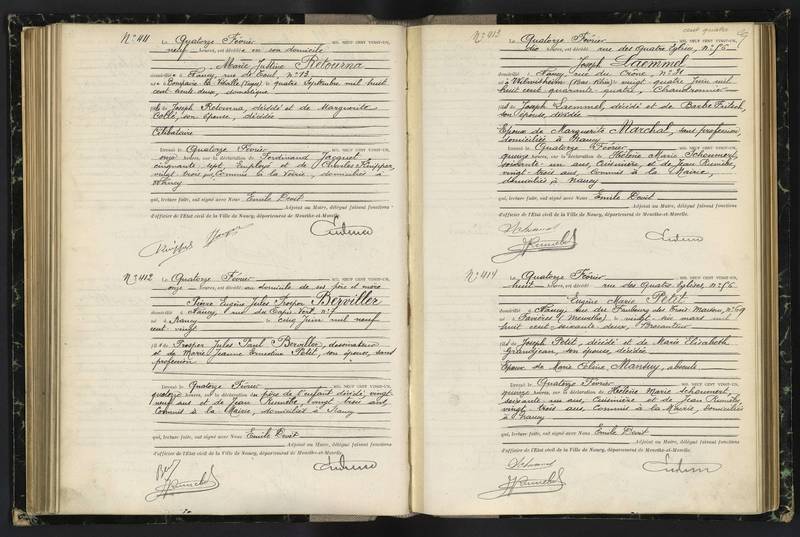 N° 411
Le Quatorze Février mil neuf cent vingt-un,
neuf heures, est décédée en son domicile
Marie Justine Retourna
domiciliée à Nancy, rue de Toul, n° 13
née à (Vosges) le quatre Septembre mil huit
cent trente deux, domestique
fille de Joseph Retourna, décédé et de Marguerite
Colle, son épouse, décédée
Célibataire
Dressé le Quatorze Février mil neuf cent vingt-un,
onze heures, sur la déclaration de Ferdinand Jacquel
cinquante sept, Employé et de Charles Knipper,
vingt trois ans, Commis à la Voirie, domiciliés à
Nancy
qui, lecture faite, ont signé avec Nous Emile Devit
Adjoint au Maire, délégué faisant fonctions
d'officier de l'Etat civil de la Ville de Nancy, département de Meurthe-et-Moselle.
N° 412
Le Quatorze Février mil neuf cent vingt-un,
onze heures, est décédé au domicile de ses père et mère
Pierre Eugène Jules Prosper Berviller
domicilié à Nancy, rue du Tapis Vert, n° 7
né à Nancy le cinq Juin mil neuf
cent vingt
fils de Prosper Jules Paul Berviller, dessinateur
et de Marie Jeanne Ernestine Petit, son épouse, sans
profession
Dressé le Quatorze Février mil neuf cent vingt-un,
quatorze heures, sur la déclaration du père de l'enfant décédé, vingt
neuf ans et de Jean Rumelle, vingt trois ans,
Commis à la Mairie, domiciliés à Nancy
qui, lecture faite, ont signé avec Nous Emile Devit
Adjoint au Maire, délégué faisant fonctions
d'officier de l'Etat civil de la Ville de Nancy, département de Meurthe-et-Moselle.
cent quatre
N° 413
Le Quatorze Février mil neuf cent vingt-un,
dix heures, est décédé rue des Quatre Eglises, n° 56
Joseph Laemmel
domicilié à Nancy, rue du Crône, n° 31
né à (Bas Rhin) le vingt quatre Juin mil
huit cent quarante quatre, Chaudronnier
fils de Joseph Laemmel, décédé et de Barbe Fritsch,
son épouse, décédée
Epoux de Marguerite Marchal, sans profession,
domiciliée à Nancy
Dressé le Quatorze Février mil neuf cent vingt-un,
quinze heures, sur la déclaration de Marie Schouvert,
soixante un ans, Cuisinière et de Jean Rumelle,
vingt trois ans, Commis à la Mairie,
domiciliés à Nancy
qui, lecture faite, ont signé avec Nous Emile Devit
Adjoint au Maire, délégué faisant fonctions
d'officier de l'Etat civil de la Ville de Nancy, département de Meurthe-et-Moselle.
N° 414
Le Quatorze Février mil neuf cent vingt-un,
huit heures, est décédé rue des Quatre Eglises, n° 56
Eugène Marie Petit
domicilié à Nancy, rue du Faubourg des Trois Maisons, n° 69
né à Favières (Meurthe) le vingt six mars mil
huit cent soixante deux, Brocanteur
fils de Joseph Petit, décédé et de Marie Elisabeth
Grandjean, son épouse, décédée
Epoux de Marie Céline Mansuy, absente
Dressé le Quatorze Février mil neuf cent vingt-un,
quinze heures, sur la déclaration de Marie Schouvert,
soixante un ans, Cuisinière et de Jean Rumelle,
vingt trois ans, Commis à la Mairie, domiciliés
à Nancy
qui, lecture faite, ont signé avec Nous Emile Devit
Adjoint au Maire, délégué faisant fonctions
d'officier de l'Etat civil de la Ville de Nancy, département de Meurthe-et-Moselle.